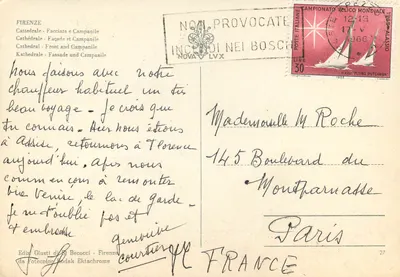 FIRENZE
Cattedrale - Facciata e Campanile
Cathédrale - Façade et Campanile
Cathedral - Front and Campanile
Kathedrale - Fassade und Campanile
NON PROVOCATE
INCENDI NEI BOSCHI
NOVA LVX
12-13
1966
POSTE ITALIANE
CAMPIONATO VELICO MONDIALE
30
Nous faisons avec notre
chauffeur habituel un très
beau voyage - Je crois que
tu connais - Hier nous étions
à Assise, retournons à Florence
aujourd'hui. Après nous
commençons à remonter
Venise, le lac de Garde -
Je ne t'oublie pas et
t'embrasse
Geneviève
Mademoiselle M Roche
145 Boulevard du
Montparnasse
Paris
FRANCE
Kodak Ektachrome